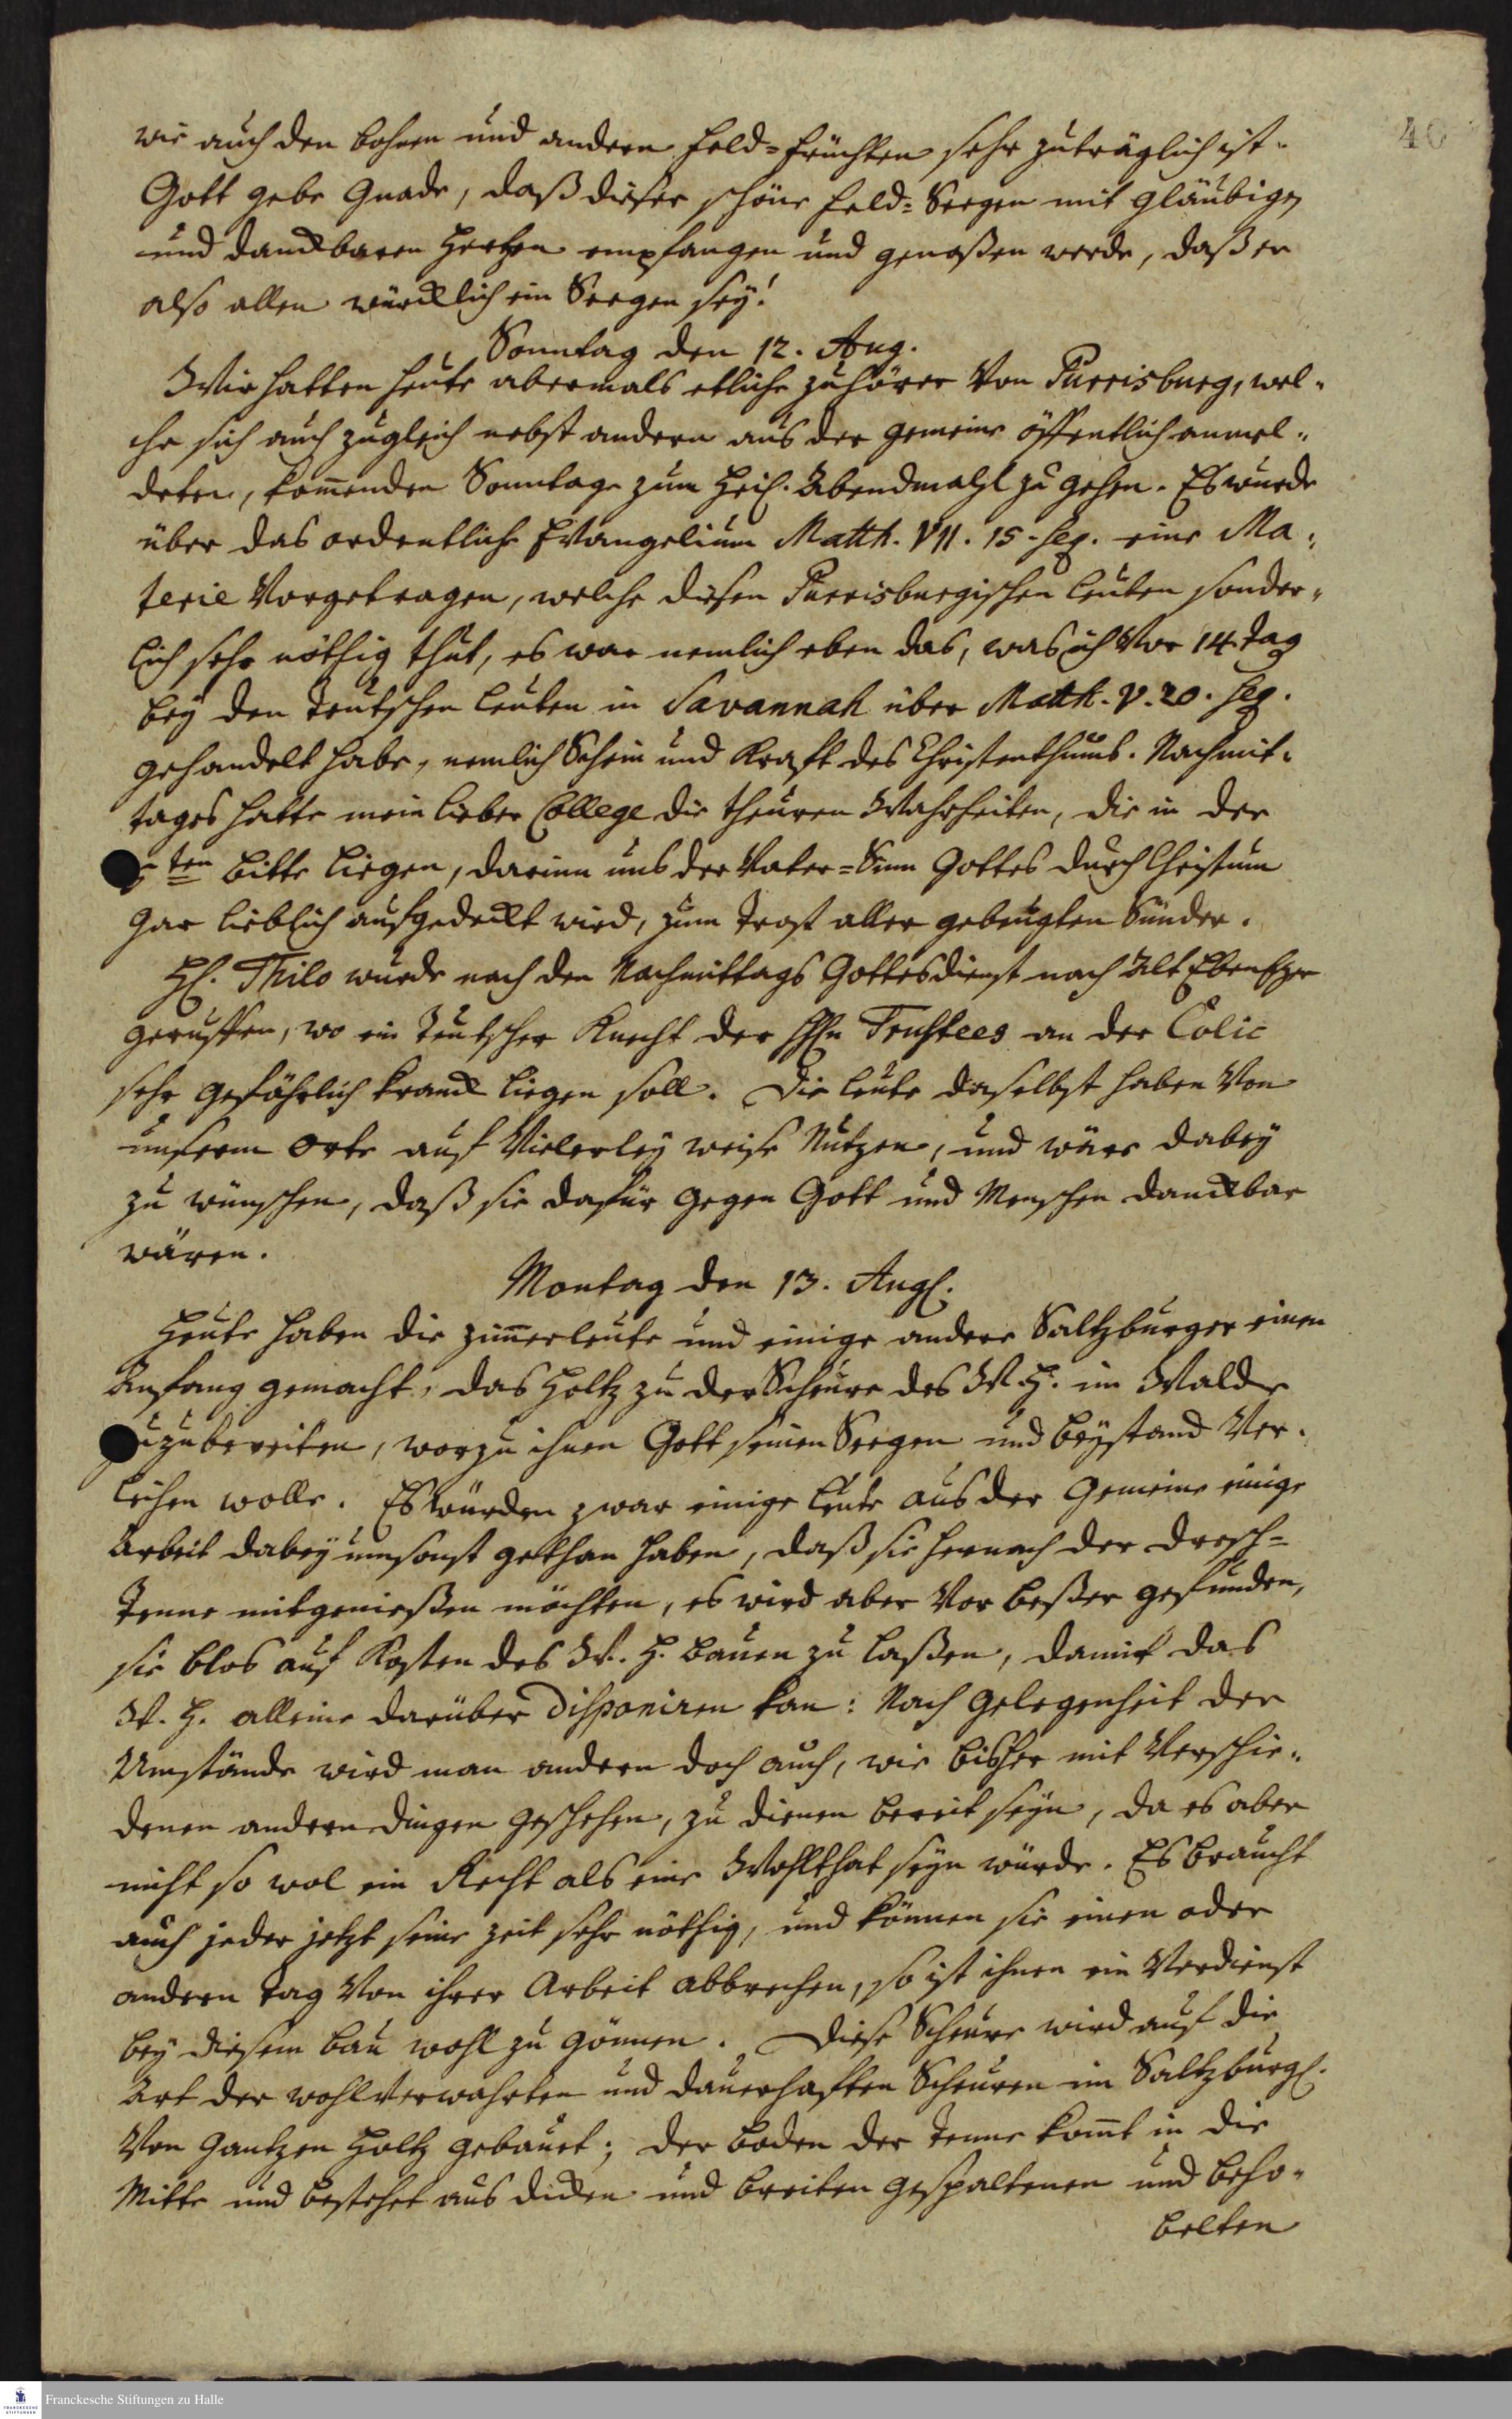 40
wie auch den bohnen und andern Feld=Früchten sehr zuträglich ist.
Gott gebe Gnade, daß dieser schöne Feld=Seegen mit gläubigen
und danckbaren Hertzen empfangen und genoßen werde, daß er
also allen würcklich ein Seegen sey!
Sonntag den 12. Aug.
Wir hatten heute abermals etliche Zuhörer von Purrisburg, wel=
che sich auch zugleich nebst andern aus der Gemeine öffentlich anmel=
deten, kom̄enden Sonntage zum Heil. Abendmahl zu gehen. Es wurde
über das ordentliche Evangelium Matth. VII. 15. seq. eine Ma=
terie vorgetragen, welche diesen Purrisburgischen Leuten sonder=
lich sehr nöthig thut, es war nemlich eben das, was ich vor 14 Tag
bey den Teutschen Leuten in Savannah über Matth. V. 20. seq.
gehandelt habe, nemlich Schein und Kraft des Christenthums. Nachmit=
tages hatte mein lieber College die theuren Wahrheiten, die in der
5ten Bitte liegen, darinn uns der Vater=Sinn Gottes durch Christum
gar lieblich aufgedeckt wird, zum Trost aller gebeugten Sünder.
H. Thilo wurde nach den Nachmittags Gottesdienst nach Alt Ebenezer
geruffen, wo ein Teutscher Knecht der HHn Trustees an der Colic
sehr gefährlich kranck liegen soll. Die Leute daselbst haben von
unserm Orte auf vielerley weise Nutzen, und wäre dabey
zu wünschen, daß sie dafür gegen Gott und Menschen danckbar
wären.
Montag den 13. Aug.
Heute haben die Zim̄erleute und einige andere Saltzburger einen
Anfang gemacht, das Holtz zu der Scheure des W. H. im Walde
zuzubereiten, worzu ihnen Gott seinen Seegen und beystand ver=
leihen wolle. Es würden zwar einige Leute aus der Gemeine einige
Arbeit dabey umsonst gethan haben, daß sie hernach der Dresch=
Tenne mitgenießen möchten, es wird aber vor beßer gefunden,
sie blos auf Kosten des W. H. bauen zu laßen, damit das
W. H. alleine darüber disponiren kan: Nach Gelegenheit der
Umstände wird man andern doch auch, wie bisher mit verschie=
denen andern Dingen geschehen, zu dienen bereit seyn, da es aber
nicht so wol ein Recht als eine Wohlthat seyn würde. Es braucht
auch jeder jetzt seine Zeit sehr nöthig, und können sie einen oder
andern Tag von ihrer Arbeit abbrechen, so ist ihnen ein Verdienst
bey diesem Bau wohl zu gönnen. Diese Scheure wird auf die
Art der wohlverwahrten und dauerhaften Scheuren im Saltzburg.
von gantzen Holtz gebauet; der Boden der Tenne kom̄t in die
Mitte und bestehet aus dicken und breiten gespaltenen und beho=
belten
Franckesche Stiftungen zu Halle